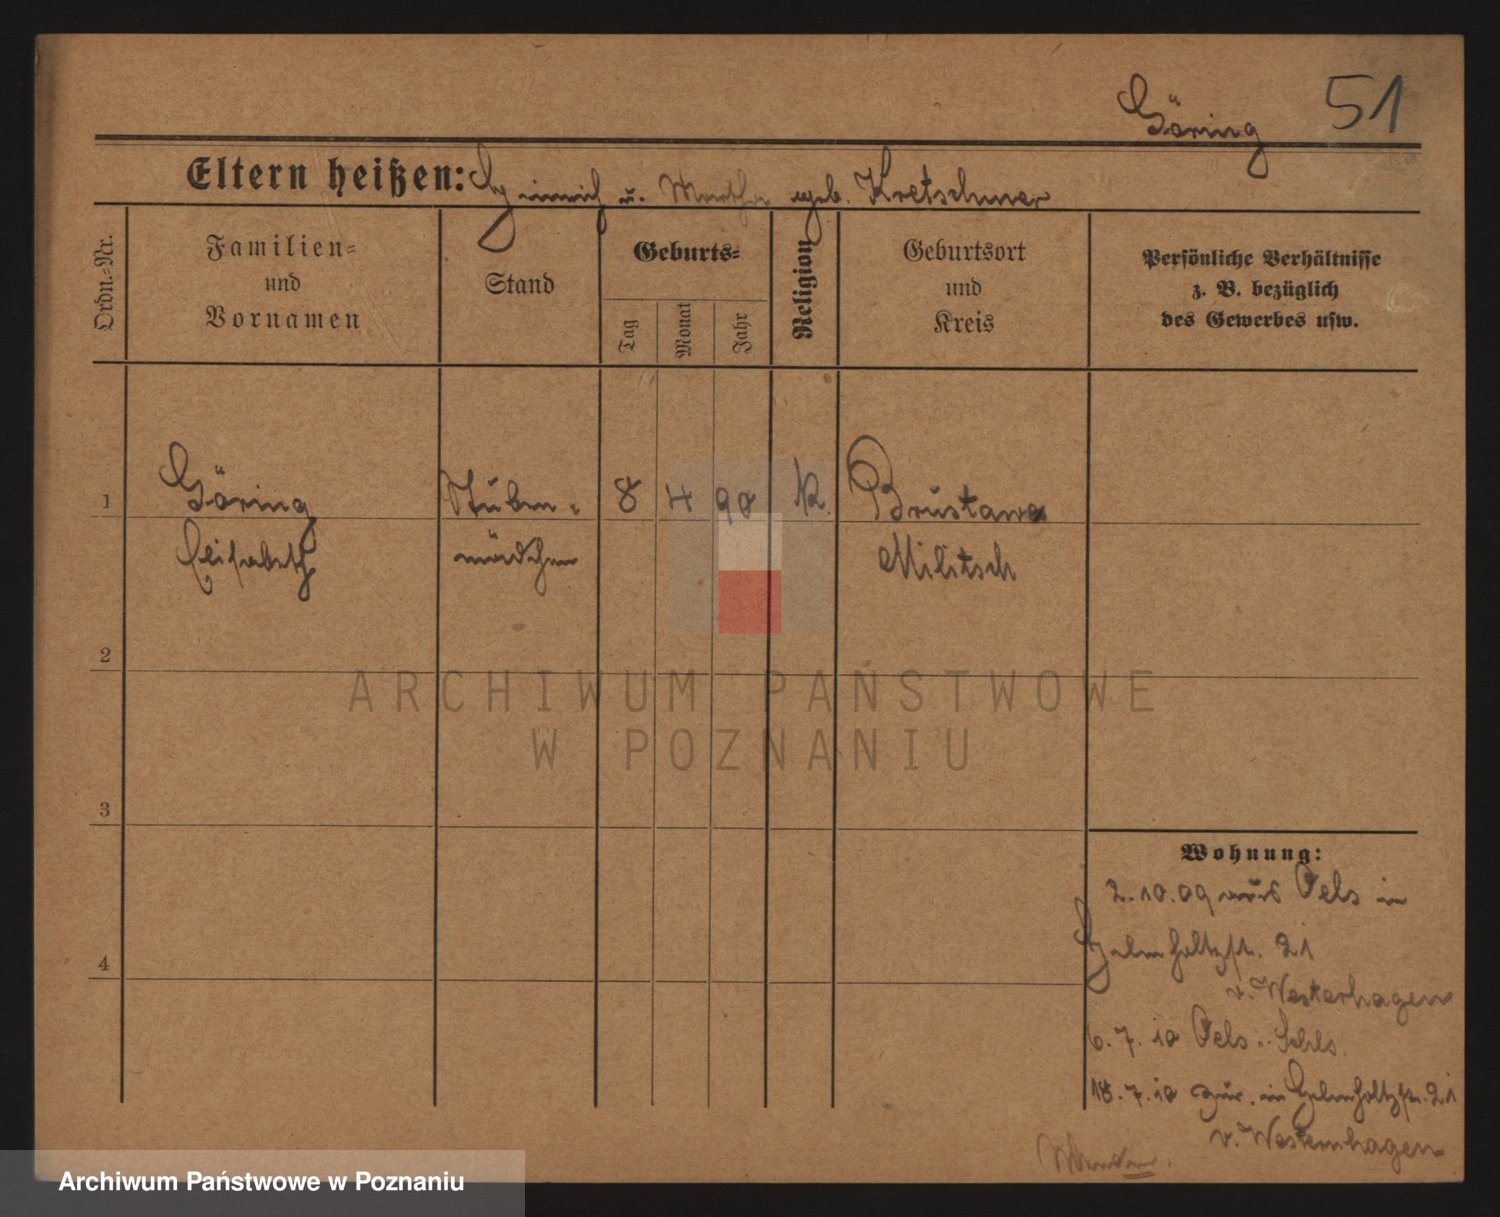 Göring 51
Eltern heißen: Heinrich u. Martha geb. Kretschmer
Ordn.=Nr.
Familien=
und
Vornamen
Stand
Geburts=
Tag
Monat
Jahr
Religion
Geburtsort
und
Kreis
Persönliche Verhältnisse
z. B. bezüglich
des Gewerbes usw.
1 Göring Stuben= 8 4 90 K. Brustawe
Elisabeth mädchen Militsch
2
ARCHIWUM PAŃSTWOWE
W POZNANIU
3
Wohnung:
2.10.09 aus Oels in
Helmholtzstr. 21
4
v. Westerhagen
6.7.10 Oels i. Schls.
18.7.10 zur. in Helmholtzstr. 21
v. Westernhagen
Archiwum Państwowe w Poznaniu